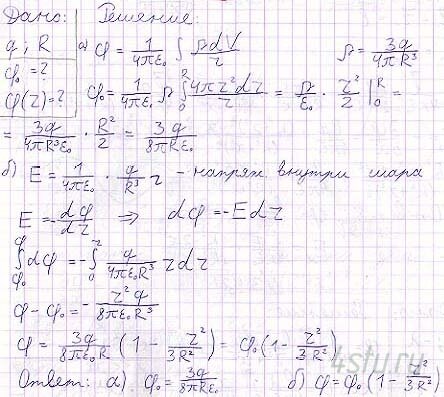 Дано: Решение:
q; R а) φ = 1/4πε₀ ∫ ρdV/r ρ = 3q/4πR³
φ₀ = ?
φ(r) = ? φ₀ = 1/4πε₀ ρ ∫₀ᴿ 4πr²dr/r = ρ/ε₀ · r²/2 |₀ᴿ =
= 3q/4πR³ε₀ · R²/2 = 3q/8πRε₀
б) E = 1/4πε₀ · q/R³ r - напряж. внутри шара
E = -dφ/dr ⇒ dφ = -Edr
∫_φ₀^φ dφ = -∫₀ʳ q/4πε₀R³ r dr
φ - φ₀ = - r²q/8πε₀R³
φ = 3q/8πε₀R (1 - r²/3R²) = φ₀(1 - r²/3R²)
Ответ: а) φ₀ = 3q/8πRε₀ б) φ = φ₀(1 - r²/3R²)
4stu.ru